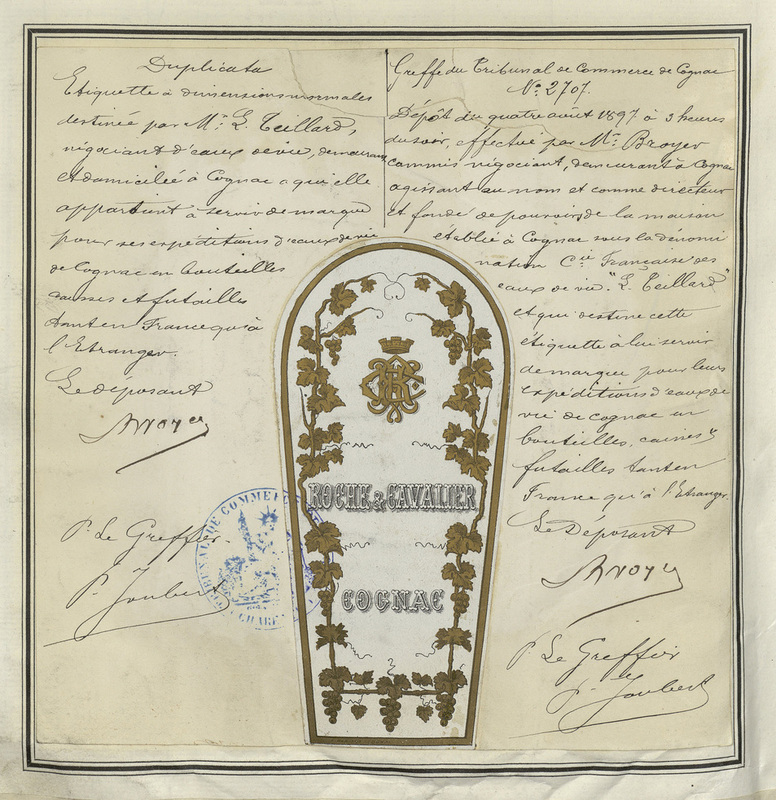 Duplicata
Etiquette à dimensions normales
destinée par Mr. L. Teillard,
négociant d'eaux de vie, demeurant
et domiciliée à Cognac a qui elle
appartient à servir de marque
pour ses expéditions d'eaux de vie
de Cognac en bouteilles
caisses et futailles
tant en France qu'à
l'Etranger.
Le déposant
Broyer
P. Le Greffier
P. Joubert
TRIBUNAL DE COMMERCE
CHARE
Greffe du Tribunal de Commerce de Cognac
No. 2707.
Dépôt du quatre août 1897 à 3 heures
du soir, effectué par Mr. Broyer
commis négociant, demeurant à Cognac
agissant au nom et comme directeur
et fondé de pouvoirs de la maison
établie à Cognac sous la dénomi
nation Cie Française des
eaux de vie. "L. Teillard"
et qui destine cette
étiquette à lui servir
de marque pour leurs
expéditions d'eaux de
vie de cognac en
bouteilles, caisses
futailles tant en
France qu'à l'Etranger.
Le Déposant
Broyer
P. Le Greffier
P. Joubert
ROCHE & CAVALIER
COGNAC